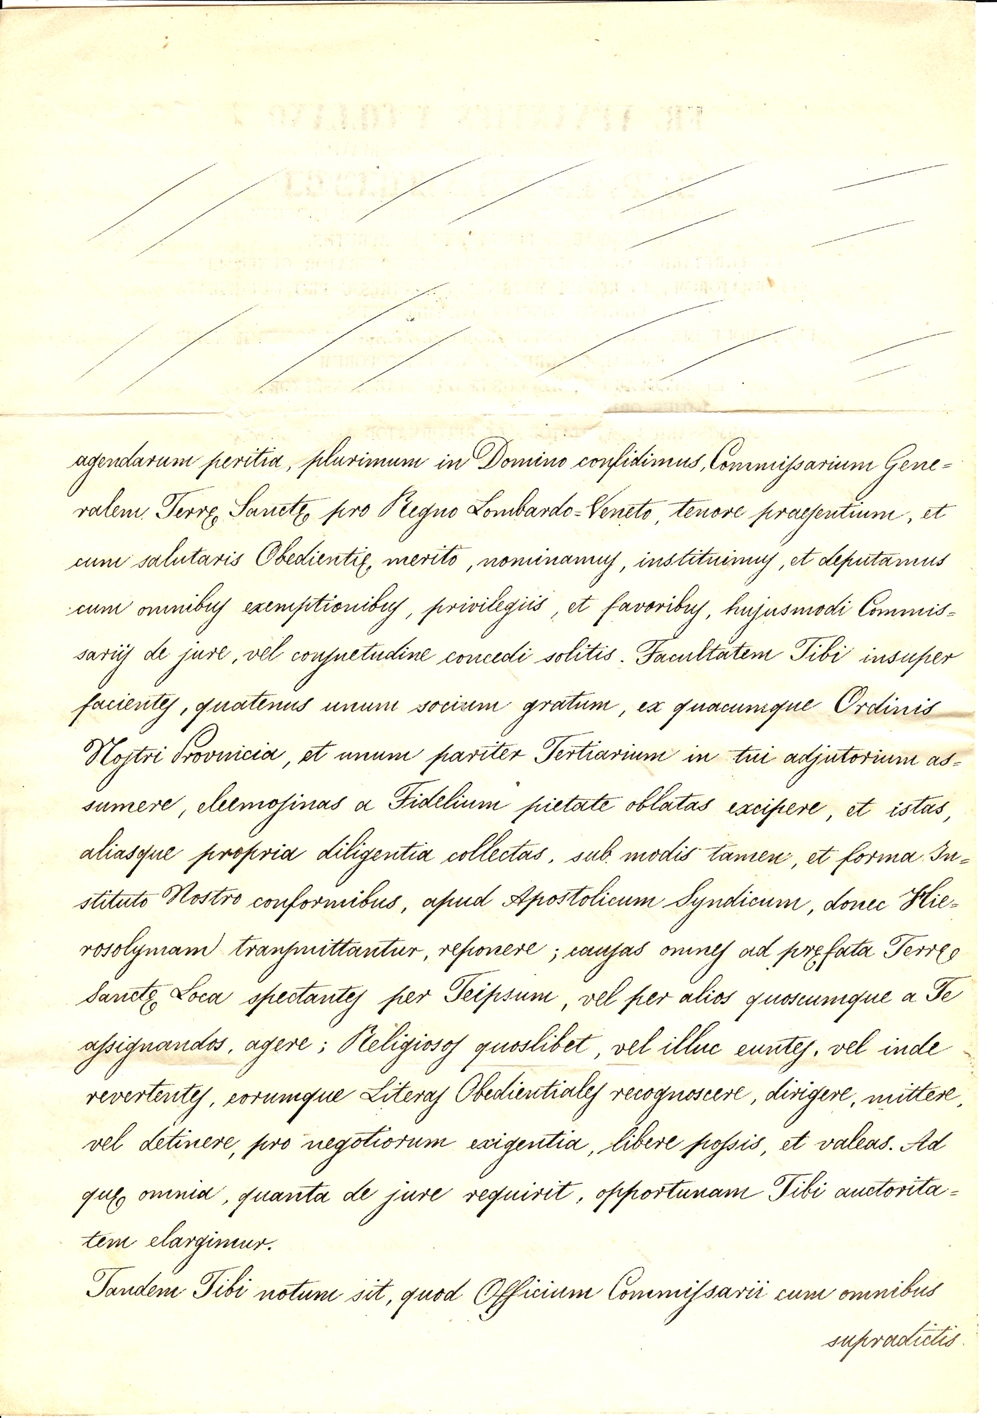 agendarum peritia, plurimum in Domino confidimus, Commissarium Gene=
ralem Terræ Sanctæ pro Regno Lombardo=Veneto, tenore praesentium, et
cum salutaris Obedientiæ merito, nominamus, instituimus, et deputamus
cum omnibus exemptionibus, privilegiis, et favoribus, hujusmodi Commis=
sariis de jure, vel consuetudine concedi solitis. Facultatem Tibi insuper
facientes, quatenus unum socium gratum, ex quacumque Ordinis
Nostri Provincia, et unum pariter Tertiarium in tui adjutorium as=
sumere, eleemosinas a Fidelium pietate oblatas excipere, et istas,
aliasque propria diligentia collectas, sub modis tamen, et forma In=
stituto Nostro conformibus, apud Apostolicum Syndicum, donec Hie=
rosolymam transmittantur, reponere; causas omnes ad præfata Terræ
Sanctæ Loca spectantes per Teipsum, vel per alios quoscumque a Te
assignandos, agere; Religiosos quoslibet, vel illuc euntes, vel inde
revertentes, eorumque Literas Obedientiales recognoscere, dirigere, mittere,
vel detinere, pro negotiorum exigentia, libere possis, et valeas. Ad
quæ omnia, quanta de jure requirit, opportunam Tibi auctorita=
tem elargimur.
Tandem Tibi notum sit, quod Officium Commissarii cum omnibus
supradictis